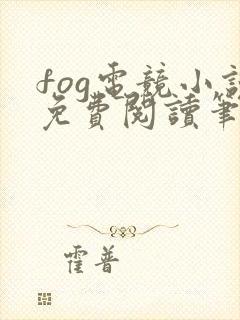 fog電競小說
免費閱讀筆
霍普